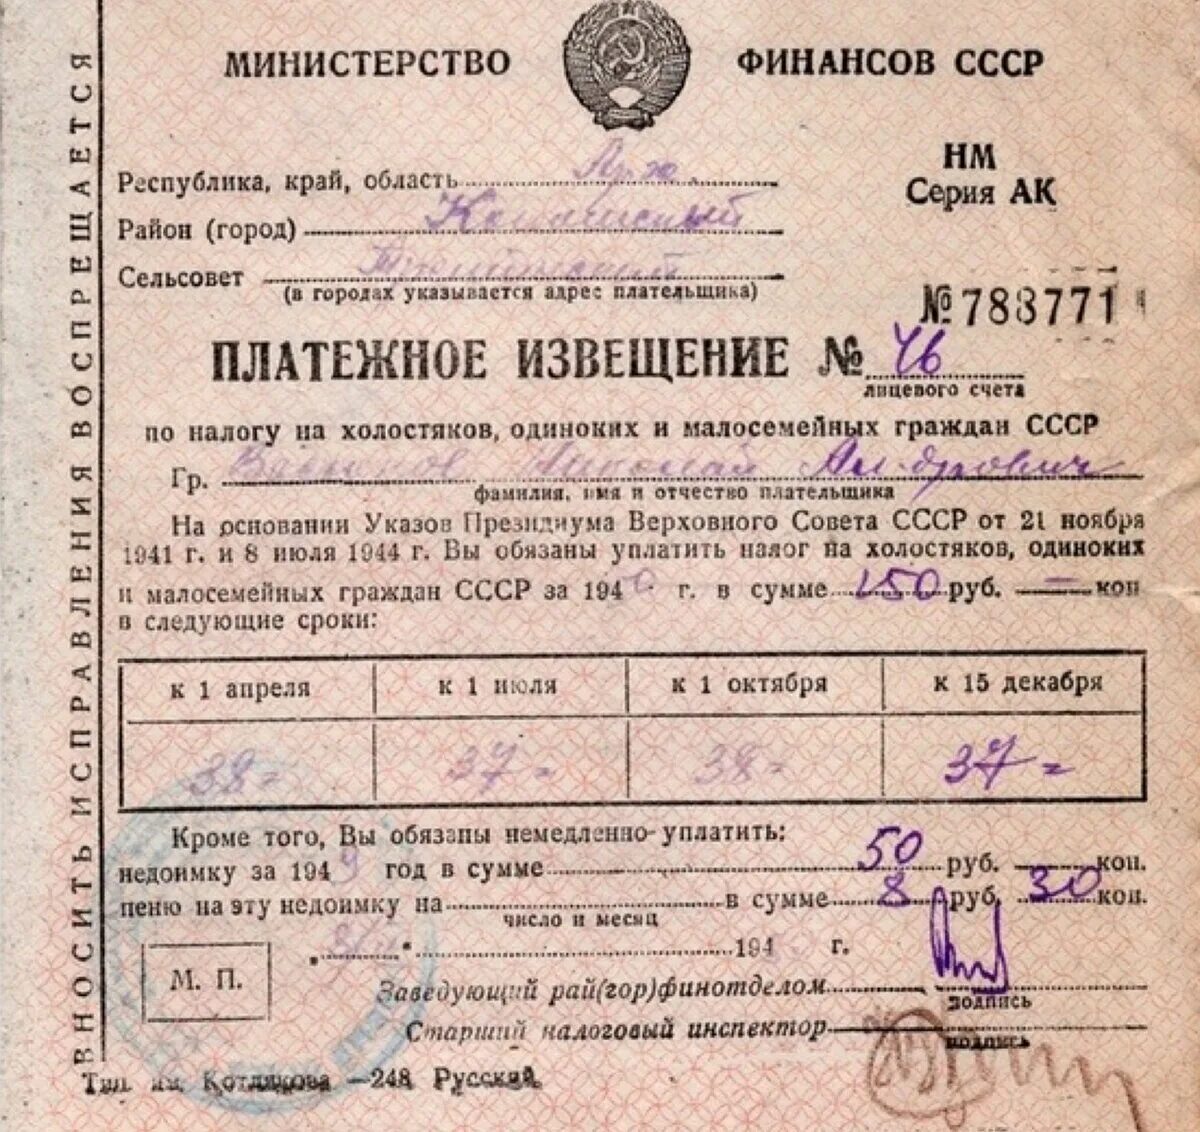 МИНИСТЕРСТВО ФИНАНСОВ СССР
НМ
Серия АК
Республика, край, область
Район (город)
Сельсовет
(в городах указывается адрес плательщика)
№ 788771
ПЛАТЕЖНОЕ ИЗВЕЩЕНИЕ № 46
лицевого счета
по налогу на холостяков, одиноких и малосемейных граждан СССР
Гр. Николай
фамилия, имя и отчество плательщика
На основании Указов Президиума Верховного Совета СССР от 21 ноября
1941 г. и 8 июля 1944 г. Вы обязаны уплатить налог на холостяков, одиноких
и малосемейных граждан СССР за 1940 г. в сумме 150 руб. — коп
в следующие сроки:
к 1 апреля к 1 июля к 1 октября к 15 декабря
38= 37= 38= 37=
Кроме того, Вы обязаны немедленно уплатить:
недоимку за 1949 год в сумме 50 руб. коп.
пеню на эту недоимку на в сумме 8 руб. 30 коп.
число и месяц
194 г.
М. П.
Заведующий рай(гор)финотделом
подпись
Старший налоговый инспектор
подпись
Тип. им. Котлякова —248 Русский.
ВНОСИТЬ ИСПРАВЛЕНИЯ ВОСПРЕЩАЕТСЯ